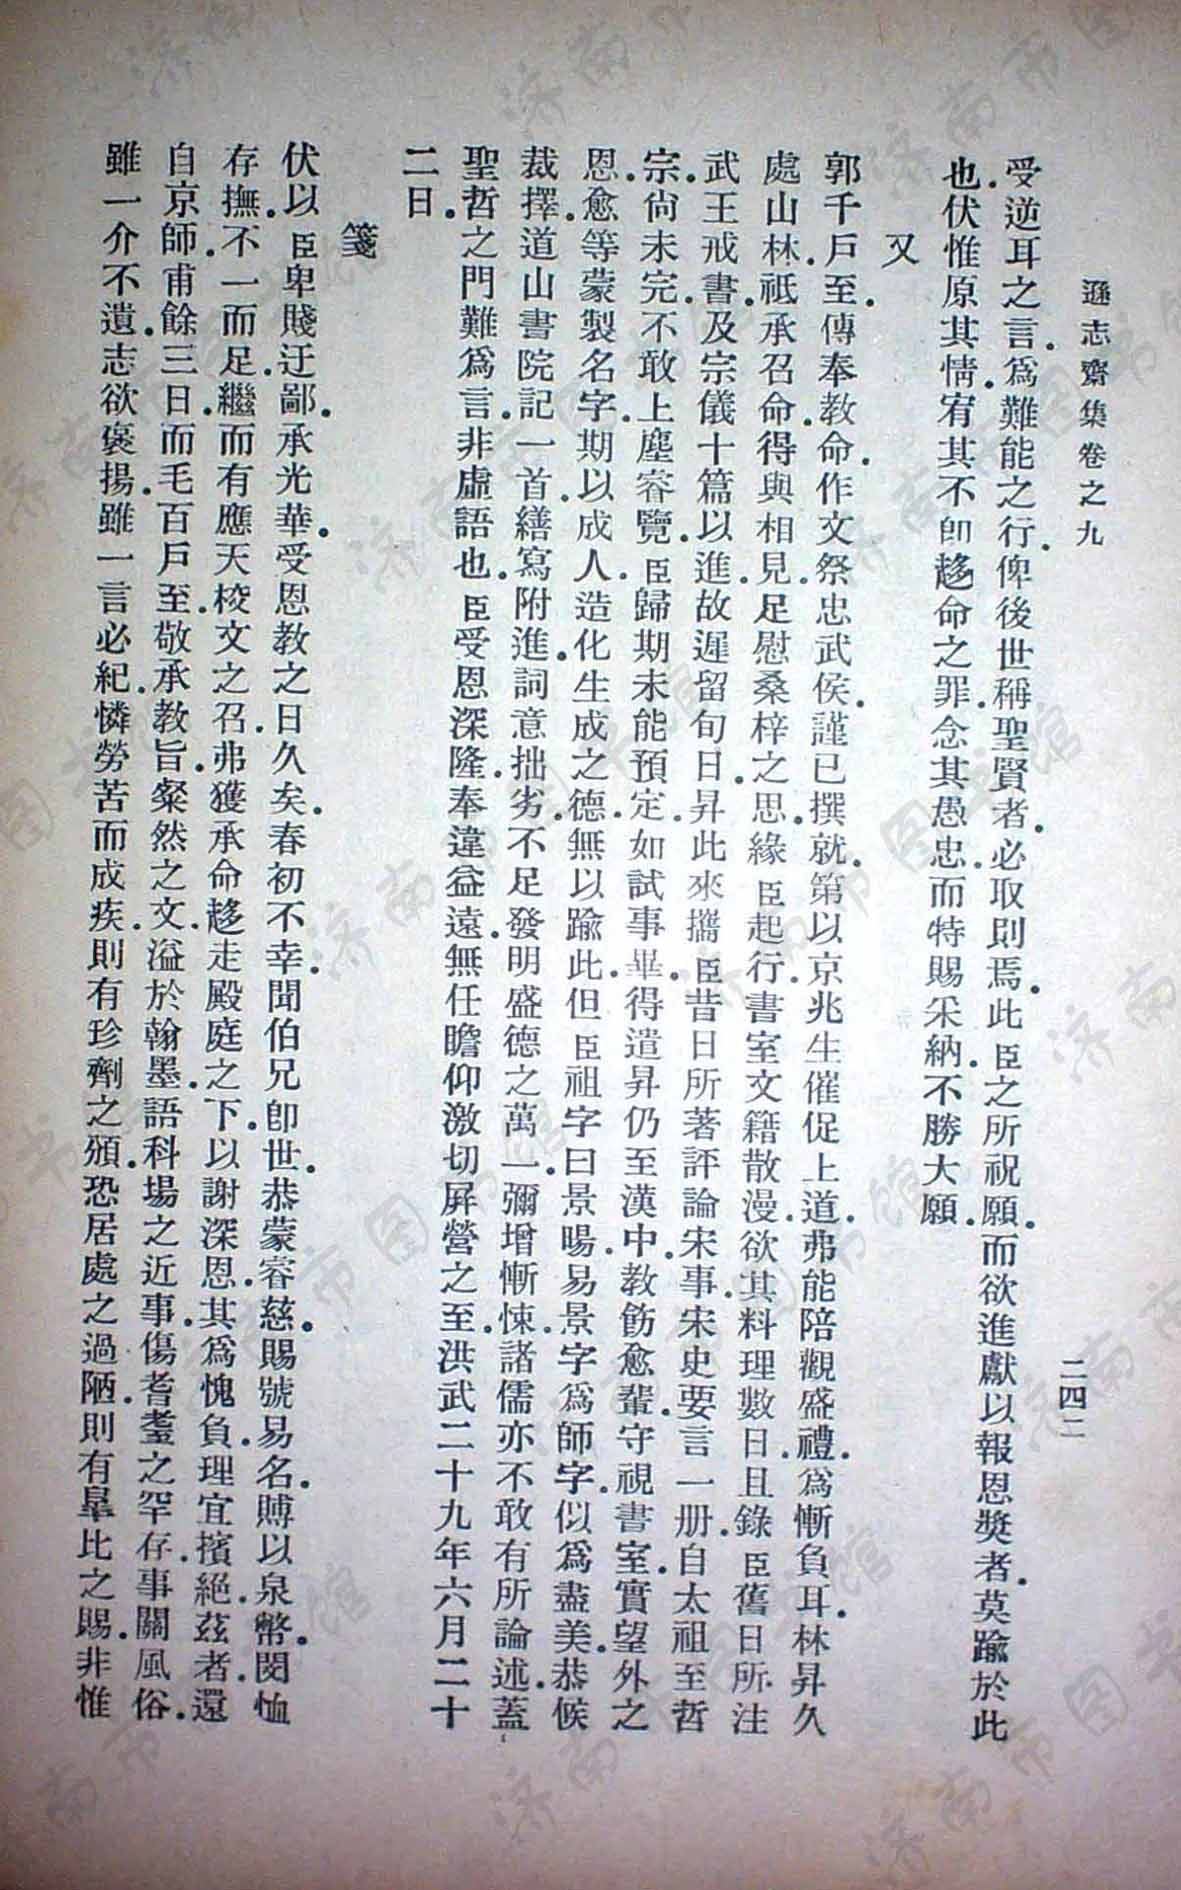 遜志齋集卷之九
二四二
受逆耳之言.爲難能之行.俾後世稱聖賢者.必取則焉.此臣之所祝願.而欲進獻以報恩獎者.莫踰於此
也.伏惟原其情.宥其不卽趍命之罪.念其愚忠.而特賜采納.不勝大願.
又
郭千戶至.傳奉教命.作文祭忠武侯.謹已撰就.第以京兆生催促上道.弗能陪觀盛禮.爲慚負耳.林昇久
處山林.祗承召命.得與相見.足慰桑梓之思.緣臣起行.書室文籍散漫.欲其料理數日.且錄臣舊日所注
武王戒書.及宗儀十篇以進.故遲留旬日.昇此來攜臣昔日所著評論宋事.宋史要言一册.自太祖至哲
宗.尙未完.不敢上塵睿覽.臣歸期未能預定.如試事畢.得遣昇仍至漢中.教飭愈輩.守視書室.實望外之
恩.愈等蒙製名字.期以成人.造化生成之德.無以踰此.但臣祖字曰景暘.易景字爲師字.似爲盡美.恭候
裁擇.道山書院記一首.繕寫附進.詞意拙劣.不足發明盛德之萬一.彌增慚悚.諸儒亦不敢有所論述.蓋
聖哲之門難爲言.非虛語也.臣受恩深隆.奉違益遠.無任瞻仰激切屛營之至.洪武二十九年六月二十
二日.
箋
伏以臣卑賤迂鄙.承光華.受恩教之日久矣.春初不幸.聞伯兄卽世.恭蒙睿慈.賜號易名.賻以泉幣.閔恤
存撫.不一而足.繼而有應天校文之召.弗獲承命趍走殿庭之下.以謝深恩.其爲愧負.理宜擯絕.茲者.還
自京師.甫餘三日.而毛百戶至.敬承教旨.粲然之文.溢於翰墨.語科場之近事.傷耆耋之罕存.事關風俗.
雖一介不遺.志欲褒揚.雖一言必紀.憐勞苦而成疾.則有珍劑之頒.恐居處之過陋.則有皐比之賜.非惟